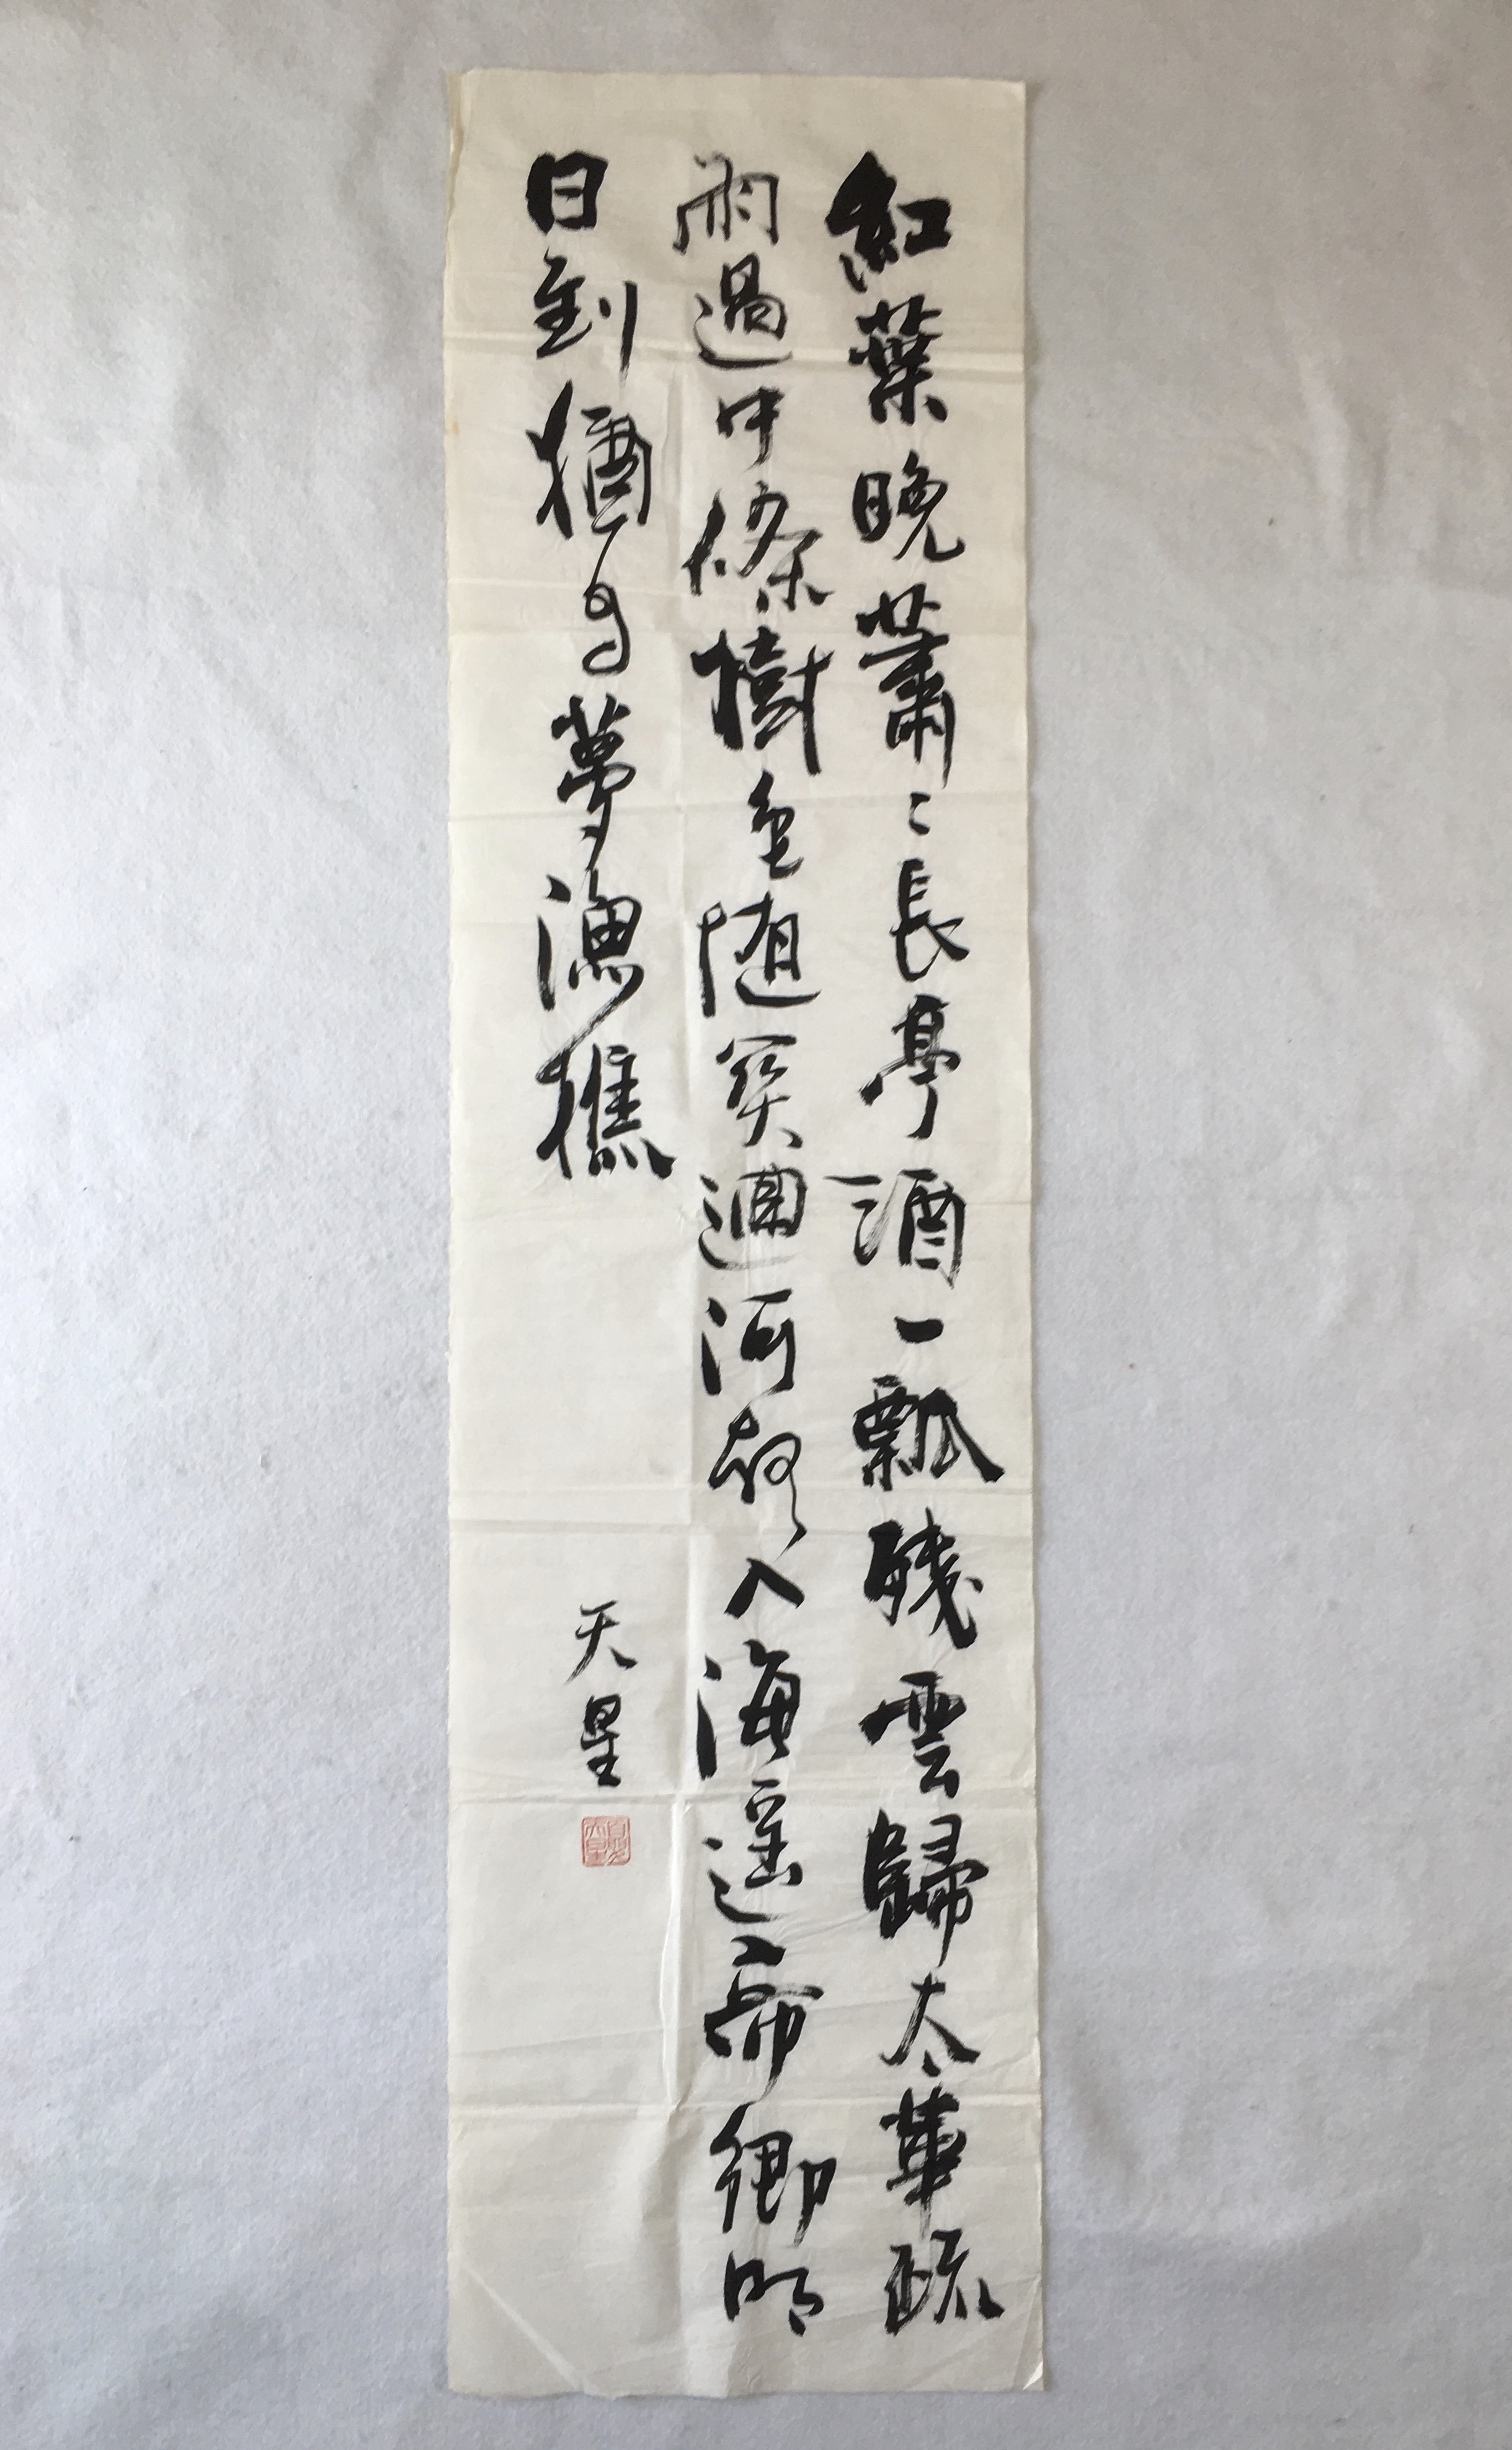 紅葉晚蕭〻長亭酒一瓢殘雲歸太華疏
雨過中條樹色随關迥河聲入海遥帝鄉明
日到猶自夢漁樵
天星